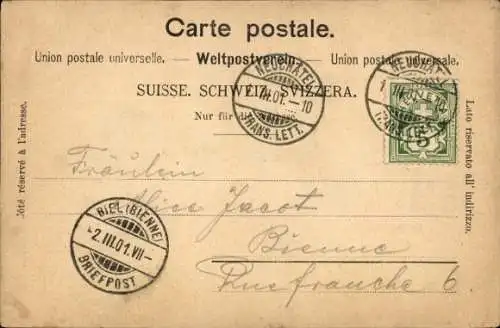 Carte postale.
Union postale universelle. — Weltpostverein — Union postale universale.
SUISSE. SCHWEIZ. SVIZZERA.
Nur für
Côté réservé à l'adresse.
Lato riservato all' indirizzo.
NEUCHÂTEL
III.01. -10
TRANS. LETT.
NEUCHÂTEL
III
TRANS. LETT.
5
Fräulein
Alice Jacot
Bienne
Rue franche 6
BIEL (BIENNE)
2.III.01.VII-
BRIEFPOST